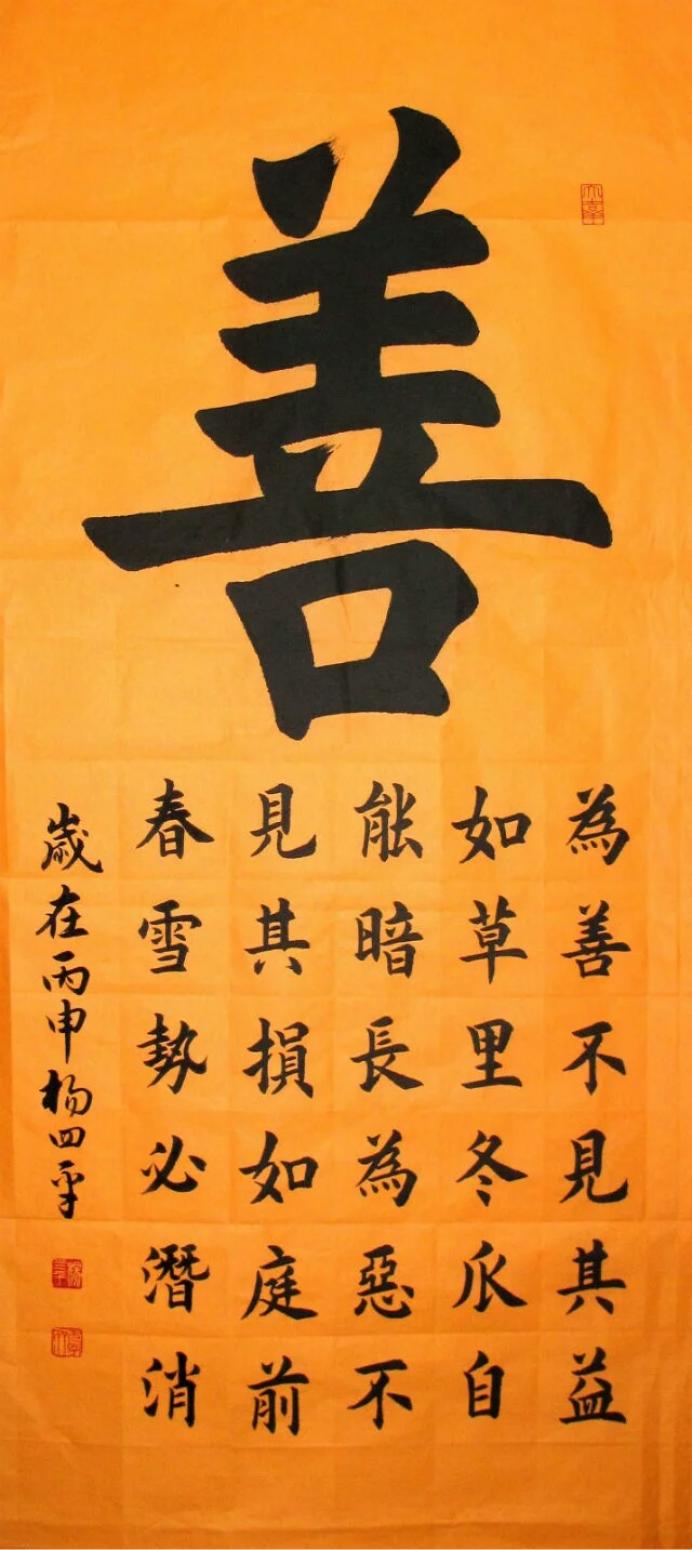 善
為善不見其益
如草里冬瓜自
能暗長為惡不
見其損如庭前
春雪勢必潛消
歲在丙申楊四平